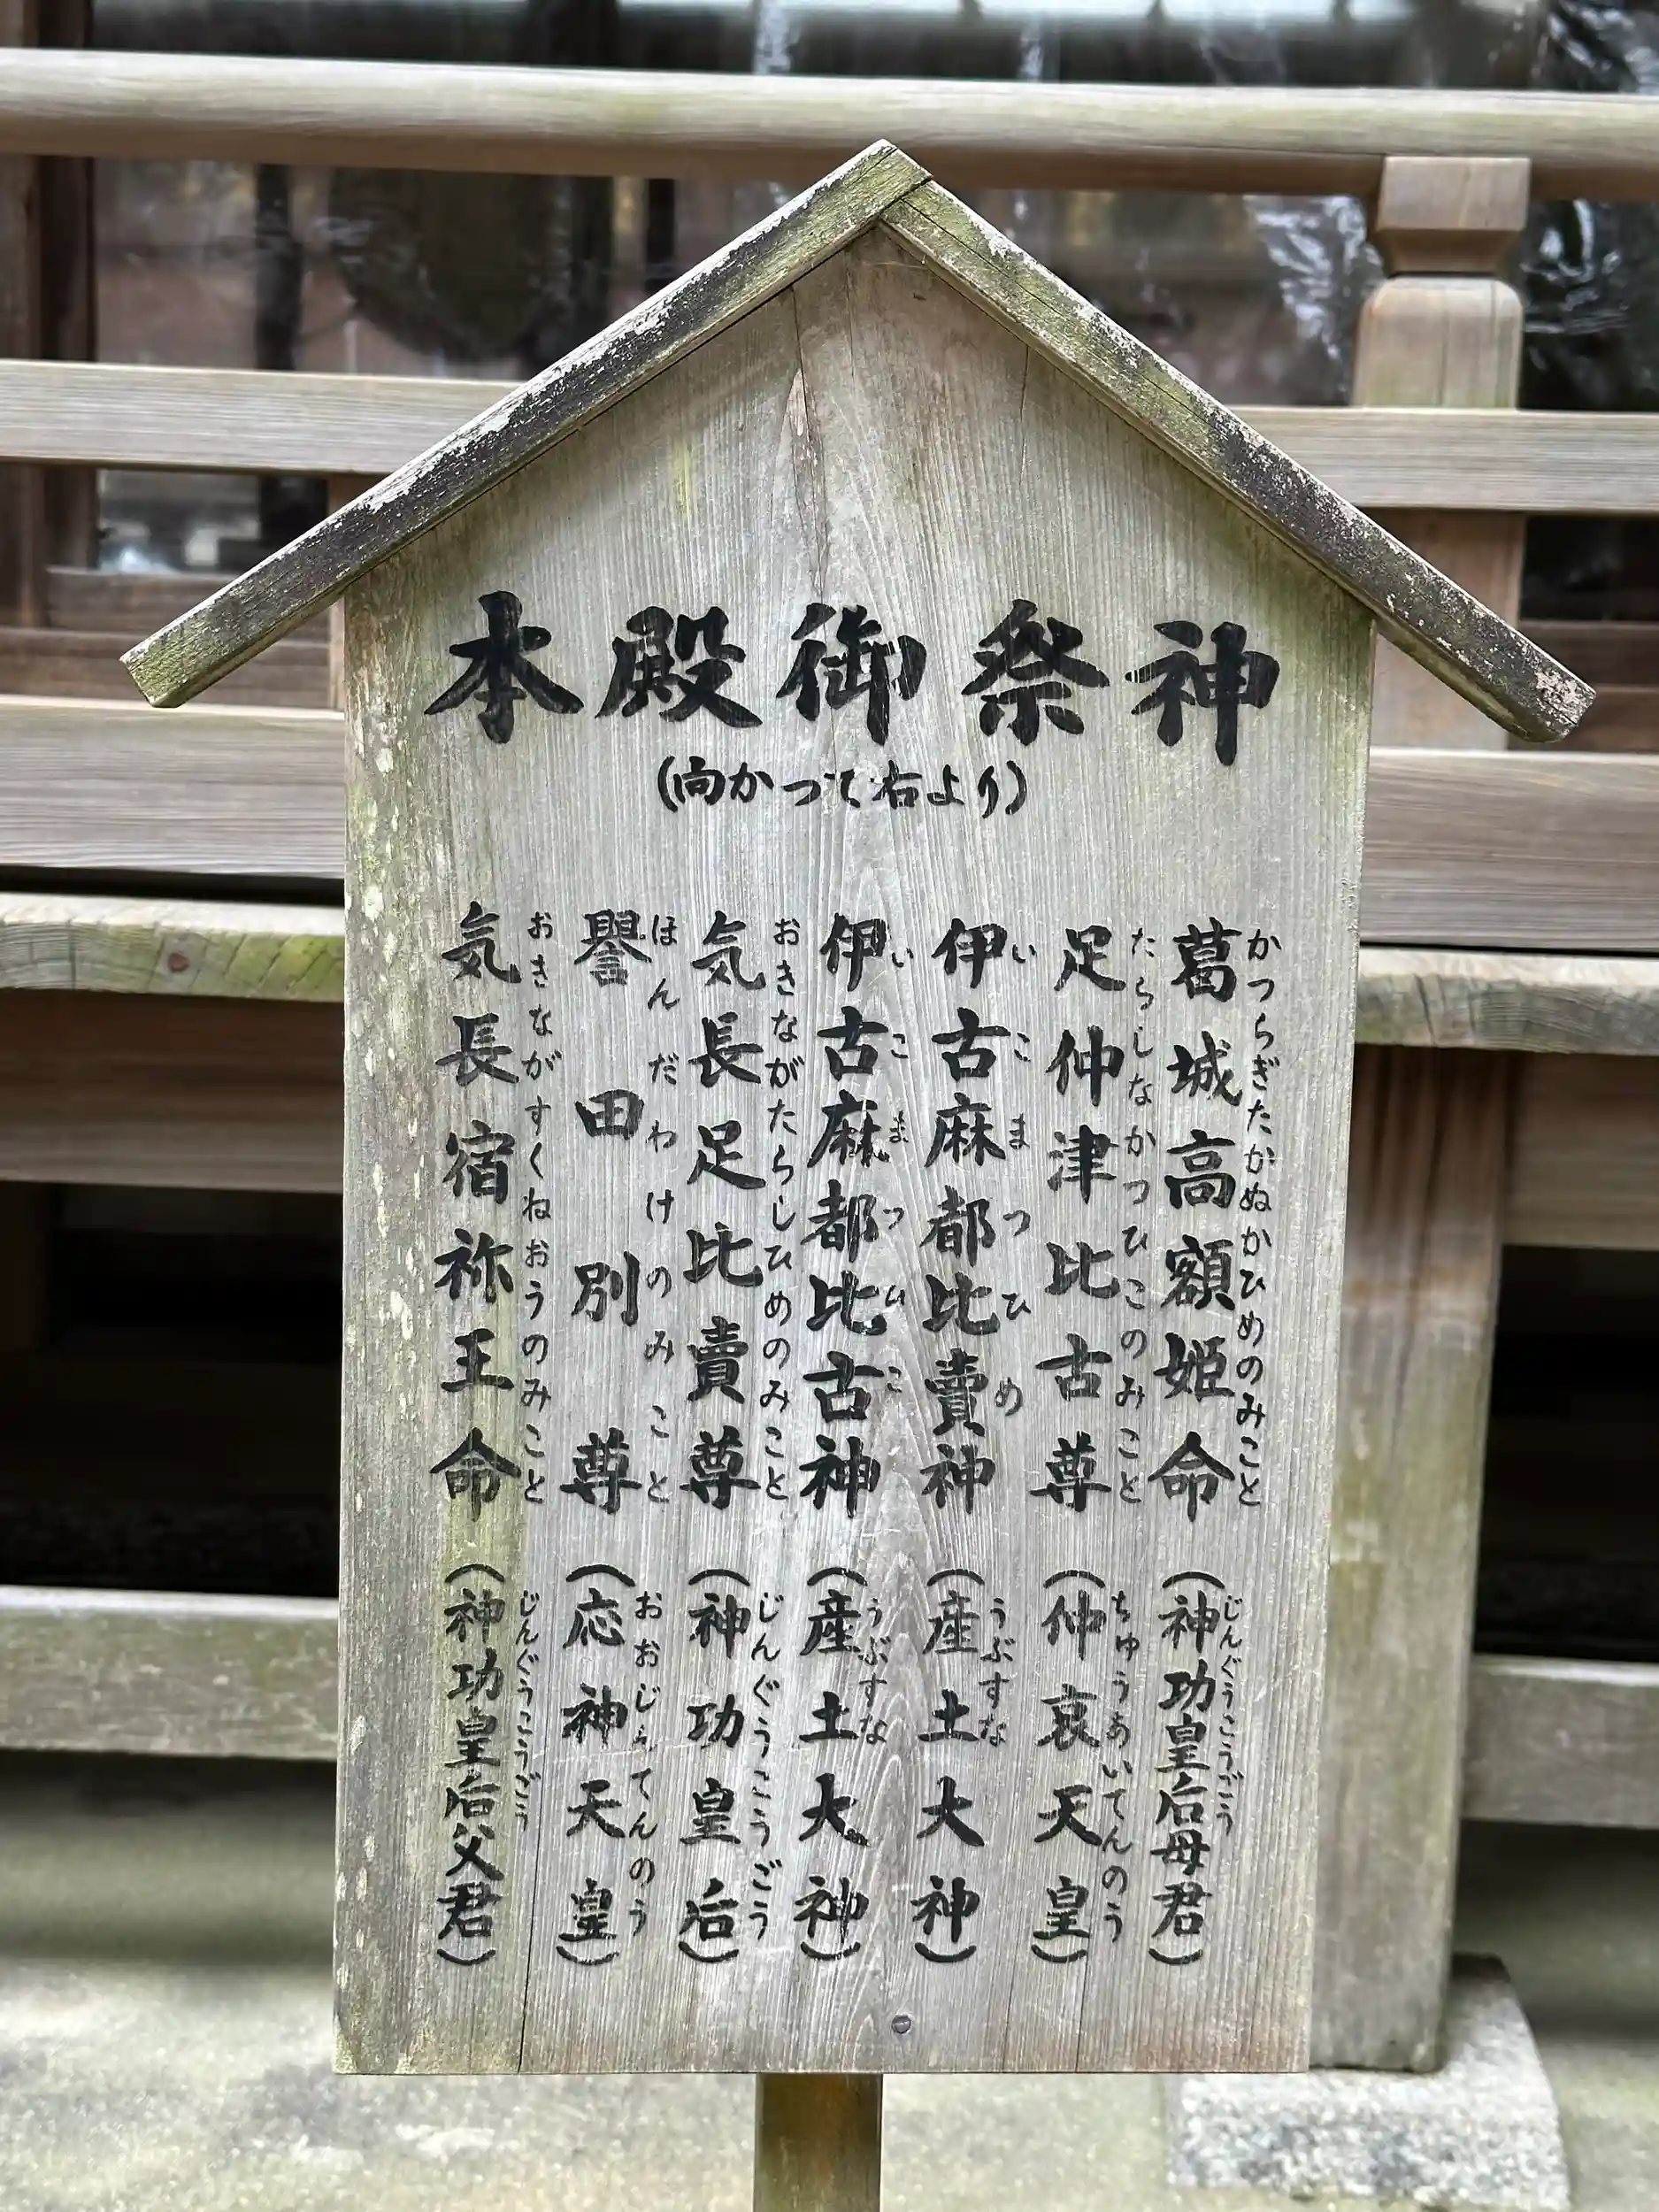 本殿御祭神
(向かって右より)
葛城高額姫命(神功皇后母君)
かつらぎたかぬかひめのみこと じんぐうこうごう
足仲津比古尊(仲哀天皇)
たらしなかつひこのみこと ちゅうあいてんのう
伊古麻都比賣神(産土大神)
いこまつひめ うぶすな
伊古麻都比古神(産土大神)
いこまつひこ うぶすな
気長足比賣尊(神功皇后)
おきながたらしひめのみこと じんぐうこうごう
譽田別尊(応神天皇)
ほんだわけのみこと おおじんてんのう
気長宿祢王命(神功皇后父君)
おきながすくねおうのみこと じんぐうこうごう